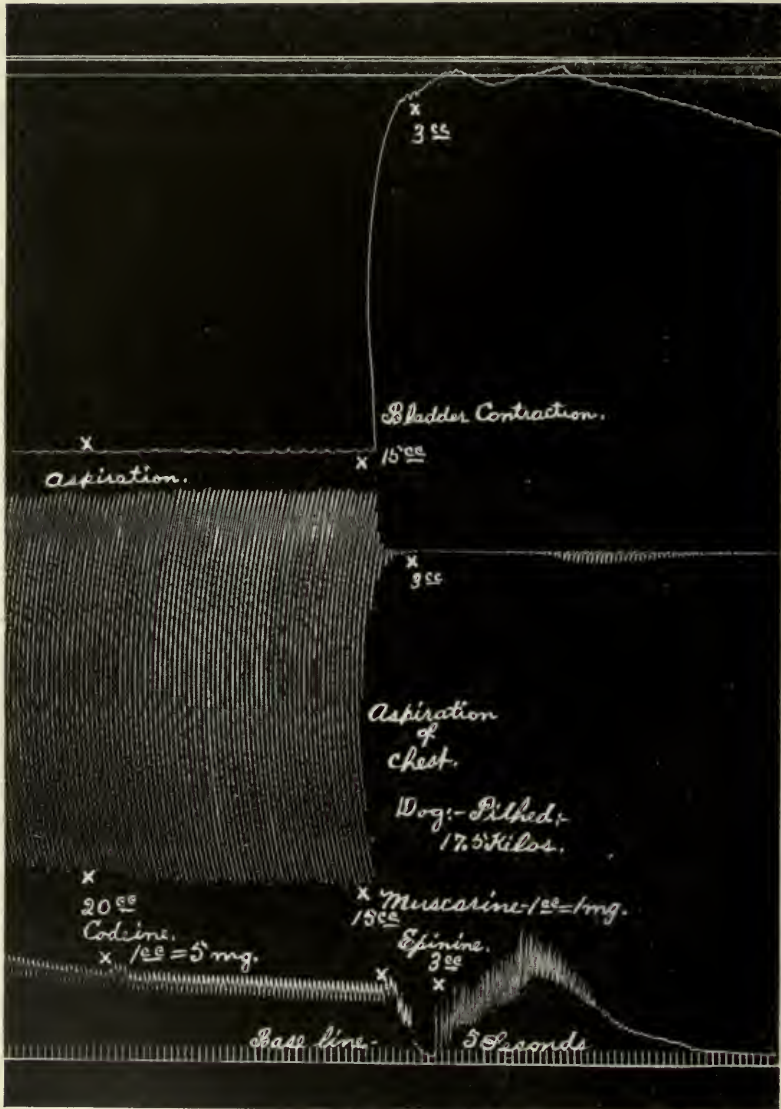 x
3 cc
Bladder Contraction.
x
x 15 cc
Aspiration.
x
3 cc
Aspiration
of
Chest.
Dog:- Pithed:-
17.5 Kilos.
x
20 cc
Codeine.
x 1 cc = 5 mg.
x
15 cc
Muscarine - 1 cc = 1 mg.
Epinine.
3 cc
x
x
Base line -
5 Seconds